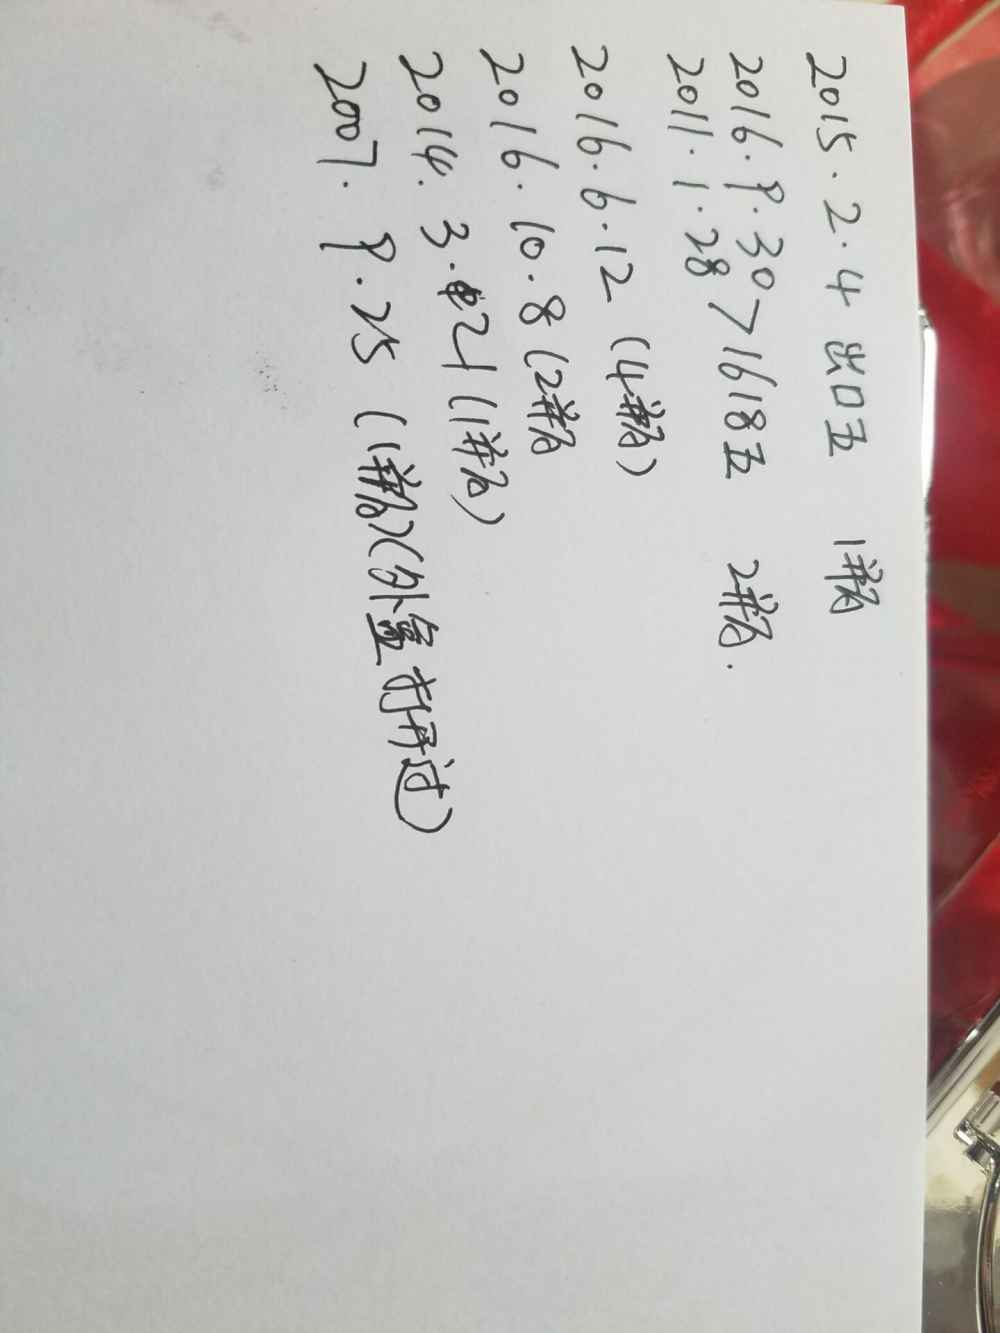 2015.2.4 出口五 1瓶
2016.9.30 > 1618五 2瓶.
2011.1.28
2016.6.12 (4瓶)
2016.10.8 (2瓶
2014.3.21 (1瓶)
2007.9.25 (1瓶)(外盒打开过)